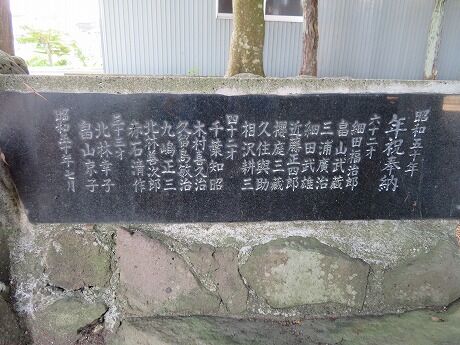 昭和五十年
年祝奉納
六十二才
細田福治郎
畠山武蔵
三浦廣治
細田武雄
近藤正四郎
櫻庭三蔵
久住與助
相沢耕三
四十二才
千葉知昭
木村喜久治
久留島敏治
九嶋正三
北村喜次郎
赤石清作
三十三才
北林幸子
畠山京子
昭和五十年七月